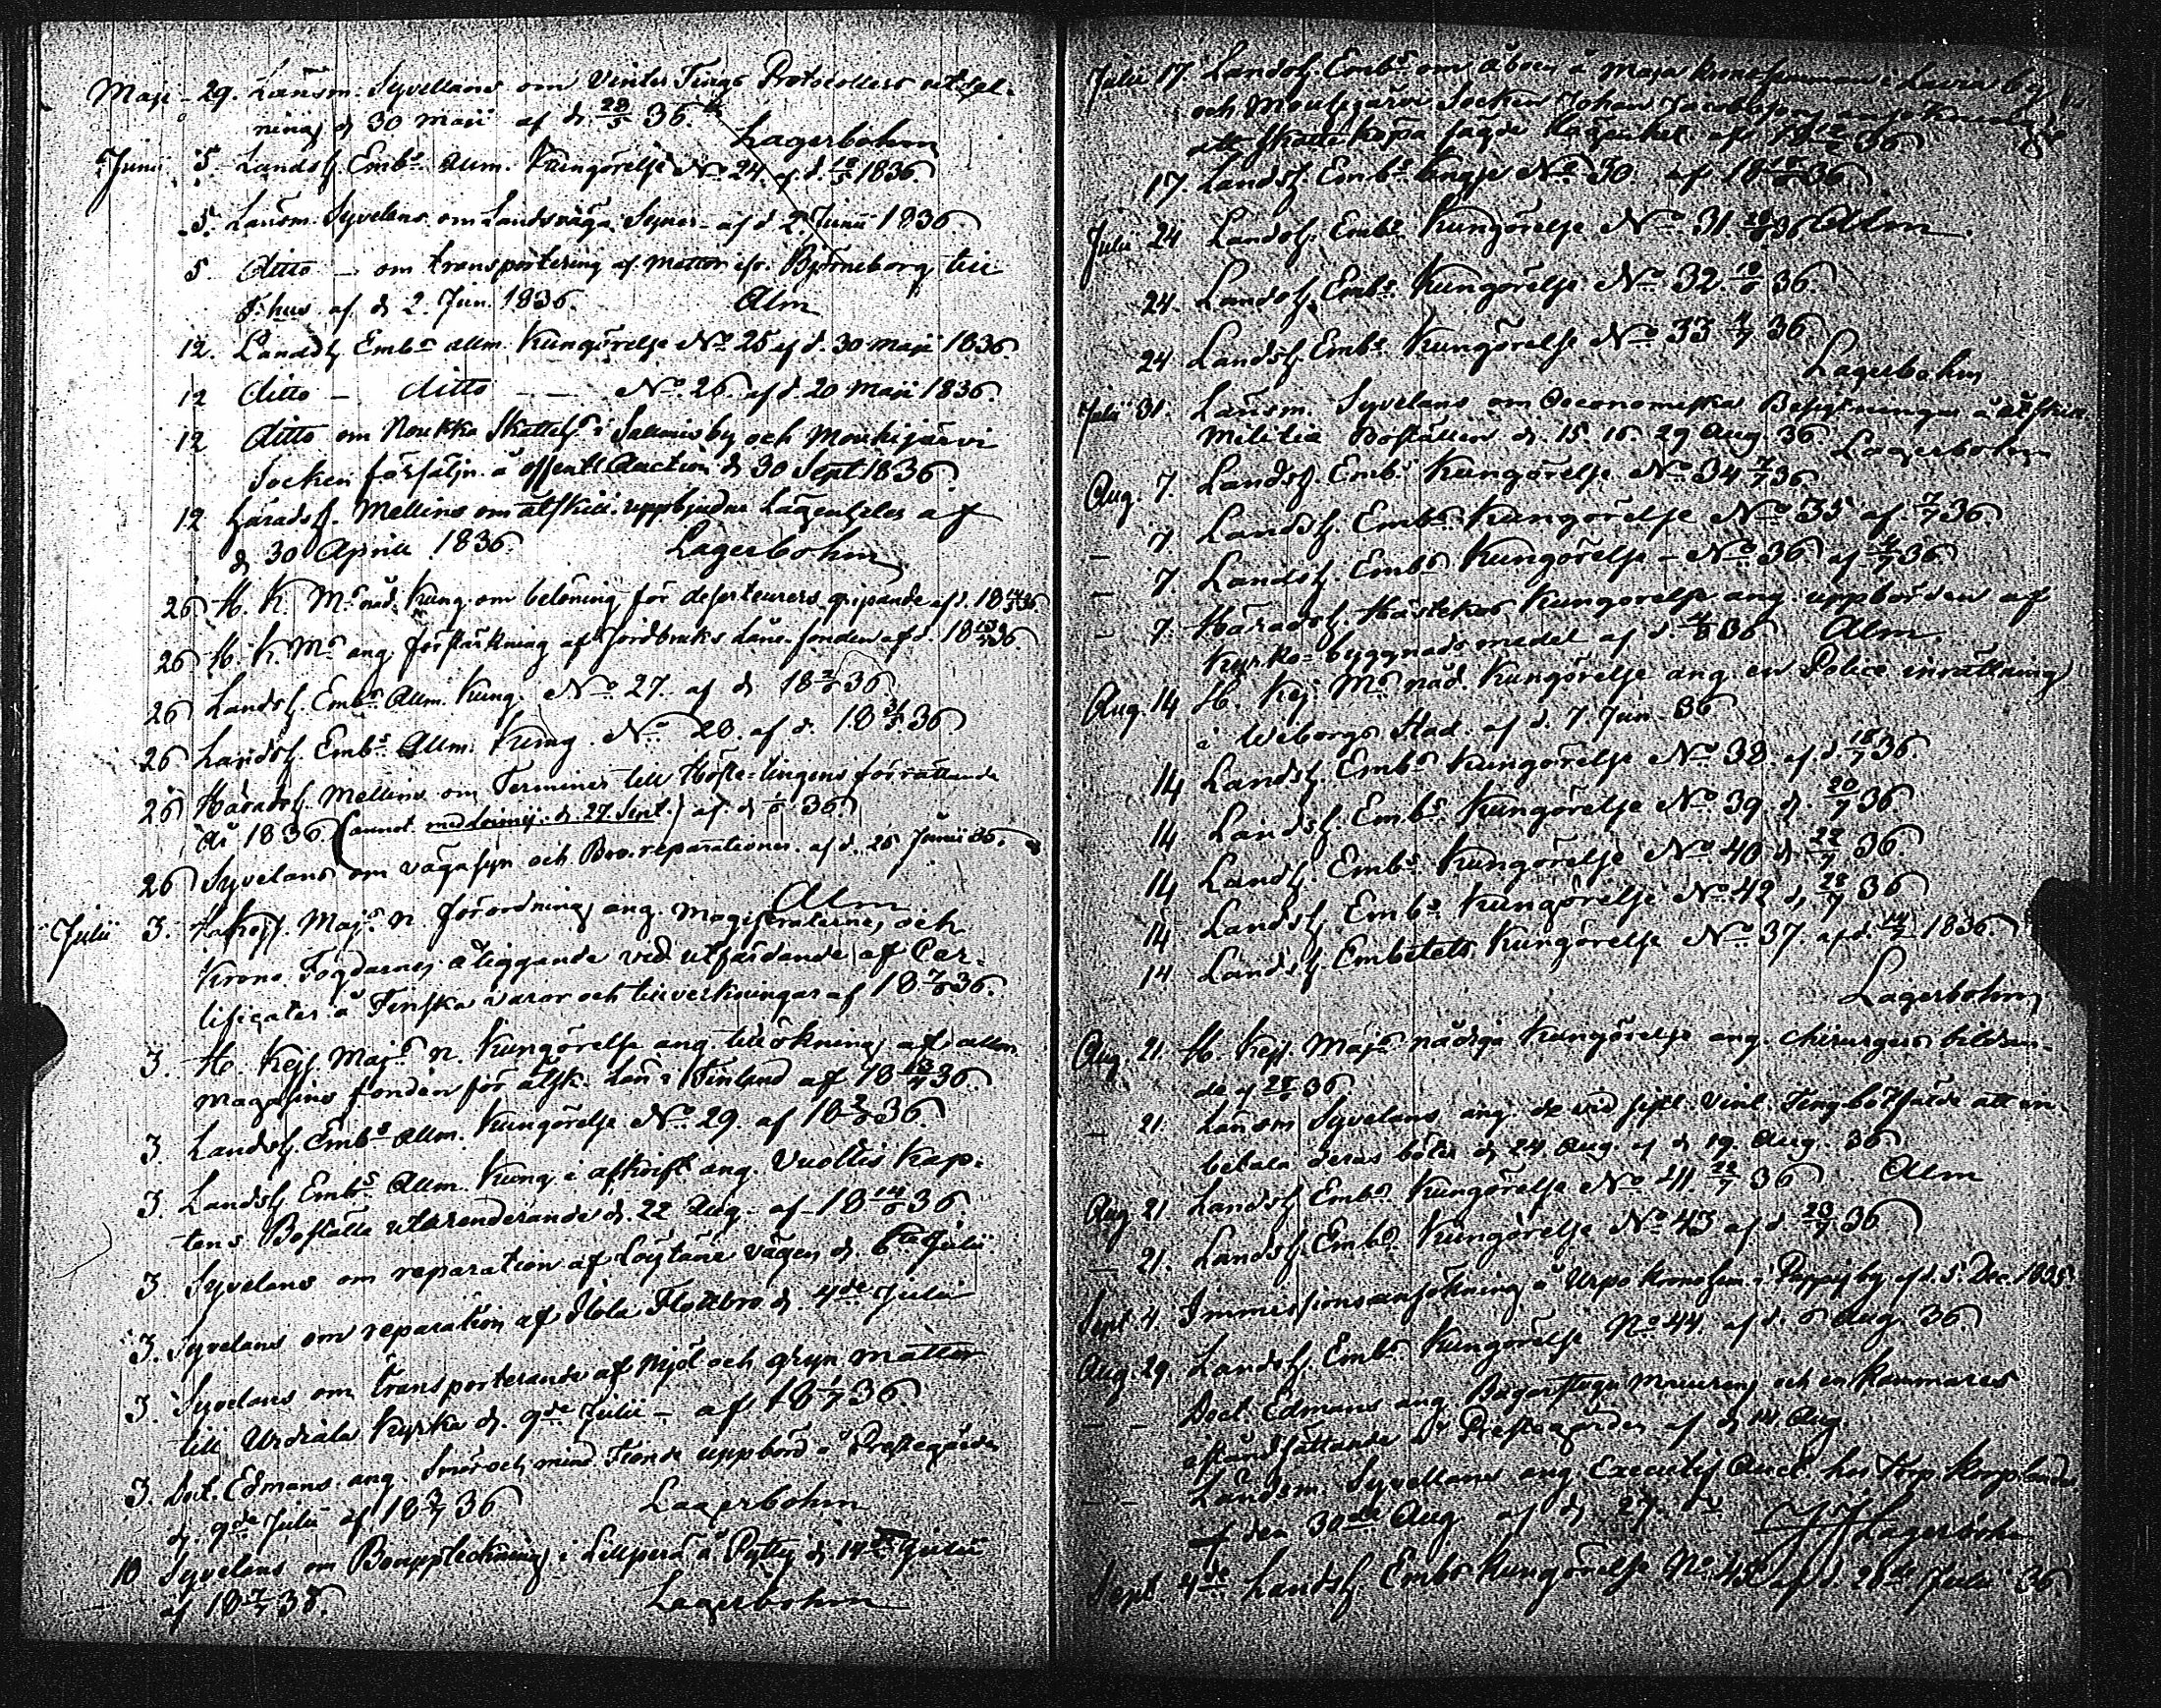 Maji - 29. Länsm. Syvellans om Vinter Tings Protocollers utdel-
ning d 30 Maji af d. 28/5 36.
Lagerbohm
Junii 5. Landsh. Embs. allm. Kungörelse No. 24. af d. 18/5 1836.
5. Länsm. Syvelans om Landsväga Syner af d 2. Junii 1836.
5 ditto - om transportering af Mattor ifr. Björneborg till
hus af d 2. Jun. 1836. Alm
12. Landsh. Embs allm. Kungörelse No. 25 af d. 30 Maji 1836
12 ditto - ditto - - No. 26. af d. 20 Maji 1836.
12 ditto om Noukka Skatteh. i Salmis by och Mouhijärvi
Socken försäljn. å offentl. Auction d 30 Sept 1836.
12 Häradsh. Mellins om åtskill. uppbjudna Lägenheter af
d 30 Aprill 1836. Lagerbohm
26 H. K. Ms. nåd. Kung. om belöning för deserteurers gripande af d. 18 36
26 H. K. Ms. ang. förstärkning af Jordbruks Låne-fonden af d. 18 36.
26 Landsh. Embs. Allm. Kung. No. 27. af d 18 2/6 36.
26 Landsh. Embs. Allm. Kung. No. 28. af d. 18 31/5 36
26 Häradsh. Mellins om Terminer till Höste-tingens förrättande
År 1836 (annot. med Loimij. d. 27. Sept.) af d 36.
26 Syvelans om vägasyn och Bro-reparationer af d. 25 Junii 36.
Alm
Julii 3. H. Kejs. Majs. n. förordning ang. Magistraterne, och
Krono Fogdarnes åliggande vid utfärdande af Cer-
tificater å Finska varor och tillverkningar af 18 7/6 36.
3. H. Kejs. Majs. n. Kungörelse ang. tillökning af allm.
Magasins fonden för åtsk. Län i Finland af 18 36.
3. Landsh. Embs. allm. Kungörelse No. 29. af 18 2/6 36.
3. Landsh. Embs. Allm. Kung. i afskrift ang. Vuoltis Kap-
tens Boställe utarenderande d. 22 Aug. af 18 14/6 36.
3 Syvelans om reparation af Löytäne vägen d. 6te Julii
3. Syvelans om reparation af Flottbro d. 4de Julii
3. Syvelans om transporterande af Mjöl och gryn mattor
till Urdiala Kyrka d. 9de Julii - af 18 1/7 36.
3. Doct. Edmans ang. Smör och mind. Tionde uppbörd å Prestegården
d. 9de Julii af 18 3/7 36 Lagerbohm
10 Syvelans om Bouppteckning i Lillperä å Pytty d 14de Julii
af 18 7/7 36. Lagerbohm
Julii 17 Landsh. Embs om åboen å Maja kronohemman i Lavia by
och Mouhijärvi Socken Johan Jacobsson ansökning
att Skatteköpa sagde Lägenhet af 18 36
17. Landsh. Embs. Kungje No. 30. af 18 36
Julii 24 Landsh. Embs. Kungörelse No. 31 36 Alm.
24. Landsh. Embs. Kungörelse No. 32. 36.
24 Landsh. Embs. Kungörelse No. 33 4/7 36
Lagerbohm
Julii 31. Länsm. Syvelans om Oeconomiska Besigtningar å åtskill.
Militie Boställen d. 15. 16. 29 Aug. 36 Lagerbohm
Aug. 7. Landsh. Embs Kungörelse No. 34 7/7 36
- 7 Landsh. Embs. Kungörelse No. 35 af 7/7 36.
- 7 Landsh. Embs Kungörelse - No. 36 af 36
- 7. Häradsh. Hästekos Kungörelse ang. uppbörden af
Kyrko-byggnads medel af d. 36 Alm.
Aug. 14 H. Kej. Ms. nåd. Kungörelse ang. en Police inrättning
i Wiborgs Stad. af d. 7. Jun. 36
14 Landsh. Embs Kungörelse No. 38. af d. 18/7 36
14 Landsh. Embs. Kungörelse No. 39. d. 20/7 36
14 Landsh. Embs. Kungörelse No. 40 d 22/7 36.
14 Landsh. Embs. Kungörelse No. 42 d, 28/7 36
14 Landsh. Embetets Kungörelse No. 37. af d. 14/7 1836.
Lagerbohm
Aug. 21. H. Kejs. Majs. nådiga Kungörelse ang. Chirurgers bildan-
de af 36
- 21. Länsm Syvelans ang. de vid sistl. Vint. Ting bötfälde att in-
betala deras böter d. 24. Aug. af d 19. Aug. 36
Alm
Aug 21 Landsh. Embs. Kungörelse No. 41. 22/7 36
- 21. Landsh. Embs. Kungörelse No. 43 af d. 23/7 36
Sept 4. Immissionsansökning å Urpo Kronohem. i by af d. 5. Dec. 1835
Aug. 29. Landsh. Embs. Kungörelse No. 44. af d. 6 Aug. 36.
- - Doct. Edmans ang. Bagarstugu Muurens och en Kammares
iståndsättande å Prestegården af d 14 Aug.
- - Länsm. Syvellans ang. Executif Auct. hos Torp. Korplandes
den 30de Aug. af d 27. Lagerbohm
Sept 4de Landsh. Embs Kungörelse No. 45 af d. 28de Julii 36